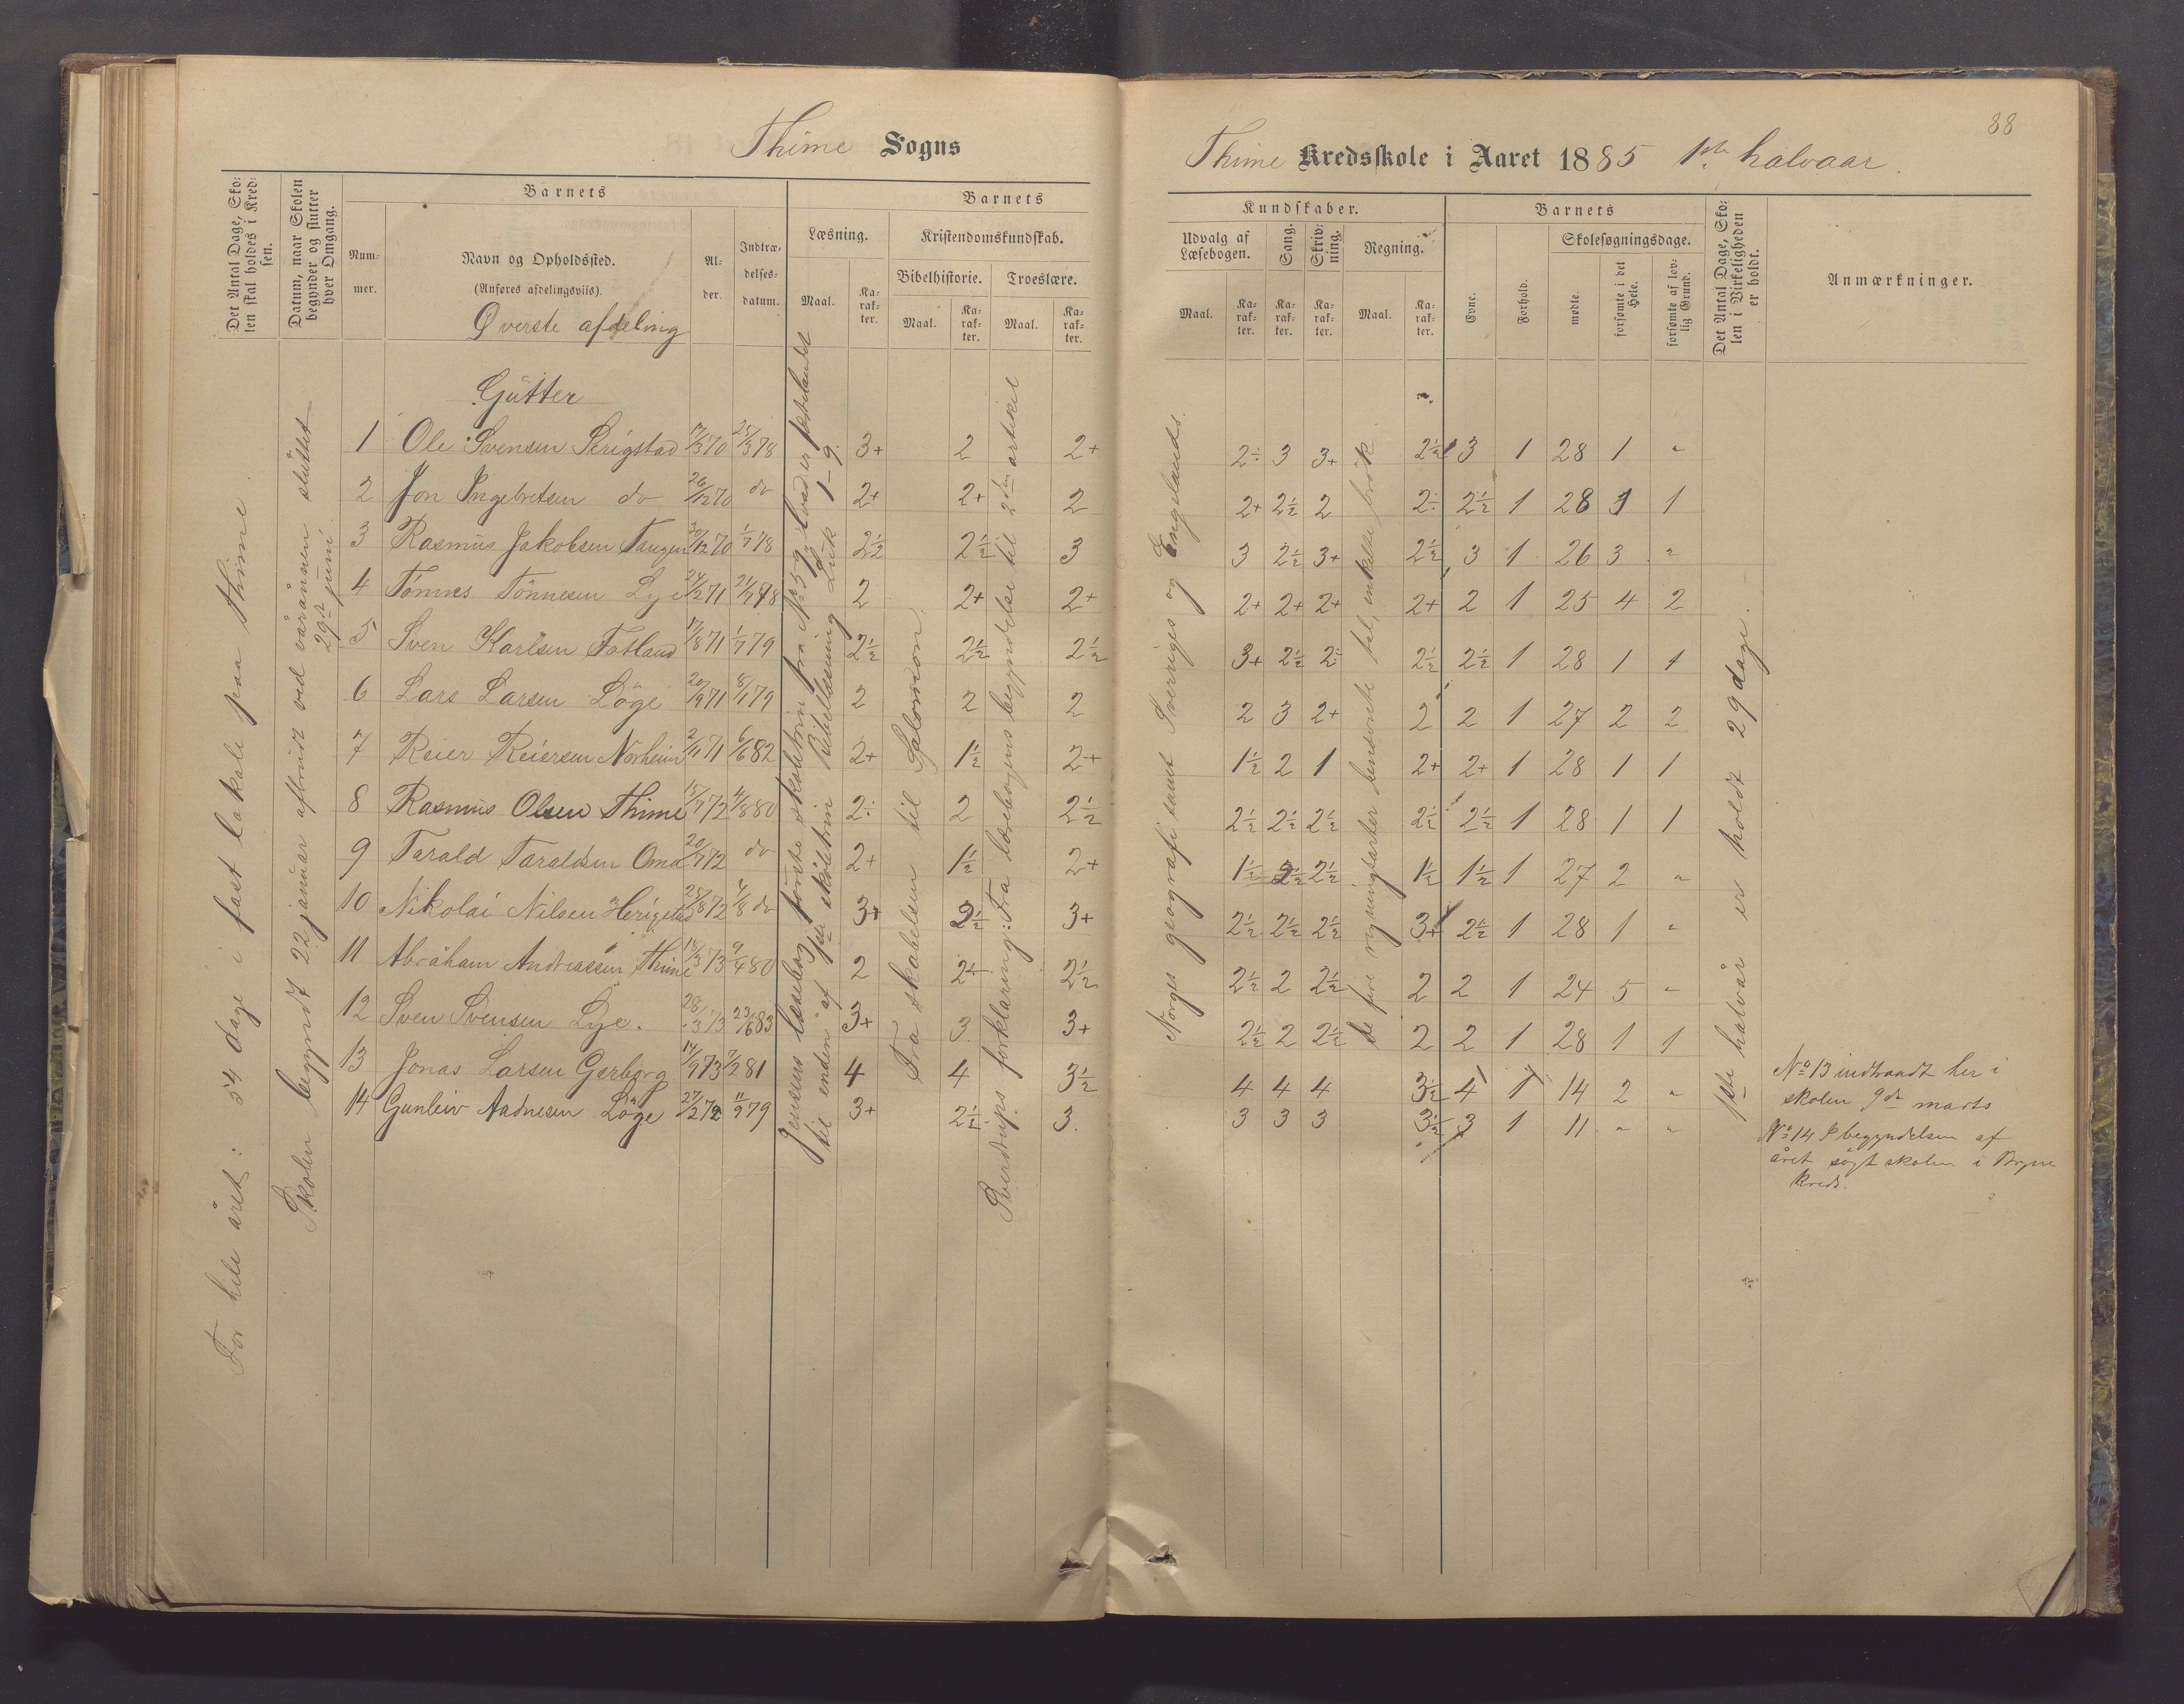 Thime Sogns
Det Antal Dage, Sko-
len skal holdes i Kred-
sen.
Datum, naar Skolen
begynder og slutter
hver Omgang.
Barnets
Num-
mer.
Navn og Opholdssted.
(Anføres afdelingsviis).
Øverste afdeling
Al-
der.
Indtræ-
delses-
datum.
Barnets
Læsning.
Maal.
Ka-
rak-
ter.
Kristendomskundskab.
Bibelhistorie.
Troeslære.
Maal.
Ka-
rak-
ter.
Maal.
Ka-
rak-
ter.
For hele året: 54 dage i fast lokale paa Thime.
Skolen begyndt 22 januar afbrudt ved våronnen sluttet
29de juni.
Gutter
1 Ole Svensen Serigstad 17/5 70 25/3 78 3+ 2 2+
2 Jon Ingebretsen do 26/12 70 do 2+ 2+ 2
3 Rasmus Jakobsen Taugen 30/12 70 1/7 78 2½ 2½ 3
4 Tönnes Tönnesen Lye 24/2 71 21/1 78 2 2+ 2+
5 Sven Karlsen Fotland 17/8 71 1/7 79 2½ 2½ 2½
6 Lars Larsen Löge 20/9 71 8/1 79 2 2 2
7 Reier Reiersen Norheim 2/11 71 6/6 82 2+ 1½ 2+
8 Rasmus Olsen Thime 15/7 72 4/8 80 2÷ 2 2½
9 Tarald Taraldsen Oma 20/7 72 do 2+ 1½ 2+
10 Nikolai Nilsen Herigstad 25/8 72 4/8 do 3+ 2½ 3+
11 Abraham Andreassen Thime 18/3 73 9/4 80 2 2÷ 2½
12 Sven Svensen Lye. 28/3 73 23/6 83 3+ 3 3+
13 Jonas Larsen Gerborg 14/9 73 7/2 81 4 4 3½
14 Gunleiv Aadnesen Löge 27/2 72 11/9 79 3+ 2½ 3.
Jensens læsebog første skoletrin fra No 59, hvad er fedrelandet
til enden af 3die skoletrin Bibellæsning Luk 1-9.
Fra skabelsen til Salomon.
Sverdrups forklaring: Fra lærebogens begyndelse til 2den artikel
88
Thime Kredsskole i Aaret 1885 1ste halvaar.
Kundskaber.
Udvalg af
Læsebogen.
Sang.
Skriv-
ning.
Regning.
Maal.
Ka-
rak-
ter.
Ka-
rak-
ter.
Ka-
rak-
ter.
Maal.
Ka-
rak-
ter.
Barnets
Evne.
Forhold.
Skolesøgningsdage.
mødte.
forsømte i det
Hele.
forsømte af lov-
lig Grund.
Det Antal Dage, Sko-
len i Virkeligheden
er holdt.
Anmærkninger.
Norges geografi samt Sveriges og Englands.
de fire regningsarter benævnte tal, enkelte brök.
1ste halvår er holdt 29 dage.
2÷ 3 3+ 2½ 3 1 28 1 "
2+ 2½ 2 2÷ 2½ 1 28 1 1
3 2½ 3+ 2½ 3 1 26 3 "
2+ 2+ 2+ 2+ 2 1 25 4 2
3+ 2½ 2÷ 2½ 2½ 1 28 1 1
2 3 2+ 2 2 1 27 2 2
1½ 2 1 2+ 2+ 1 28 1 1
2½ 2½ 2½ 2½ 2½ 1 28 1 1
1½ 2½ 2½ 1½ 1½ 1 27 2 "
2½ 2½ 2½ 3+ 2½ 1 28 1 "
2½ 2 2½ 2 2 1 24 5 "
2½ 2 2½ 2 2 1 28 1 1
4 4 4 3½ 4 1 14 2 "
3 3 3 3½ 3 1 11 " "
No 13 indtraadt her i
skolen 9de marts
No 14 I begyndelsen af
året søgt skolen i Bryne
kreds.